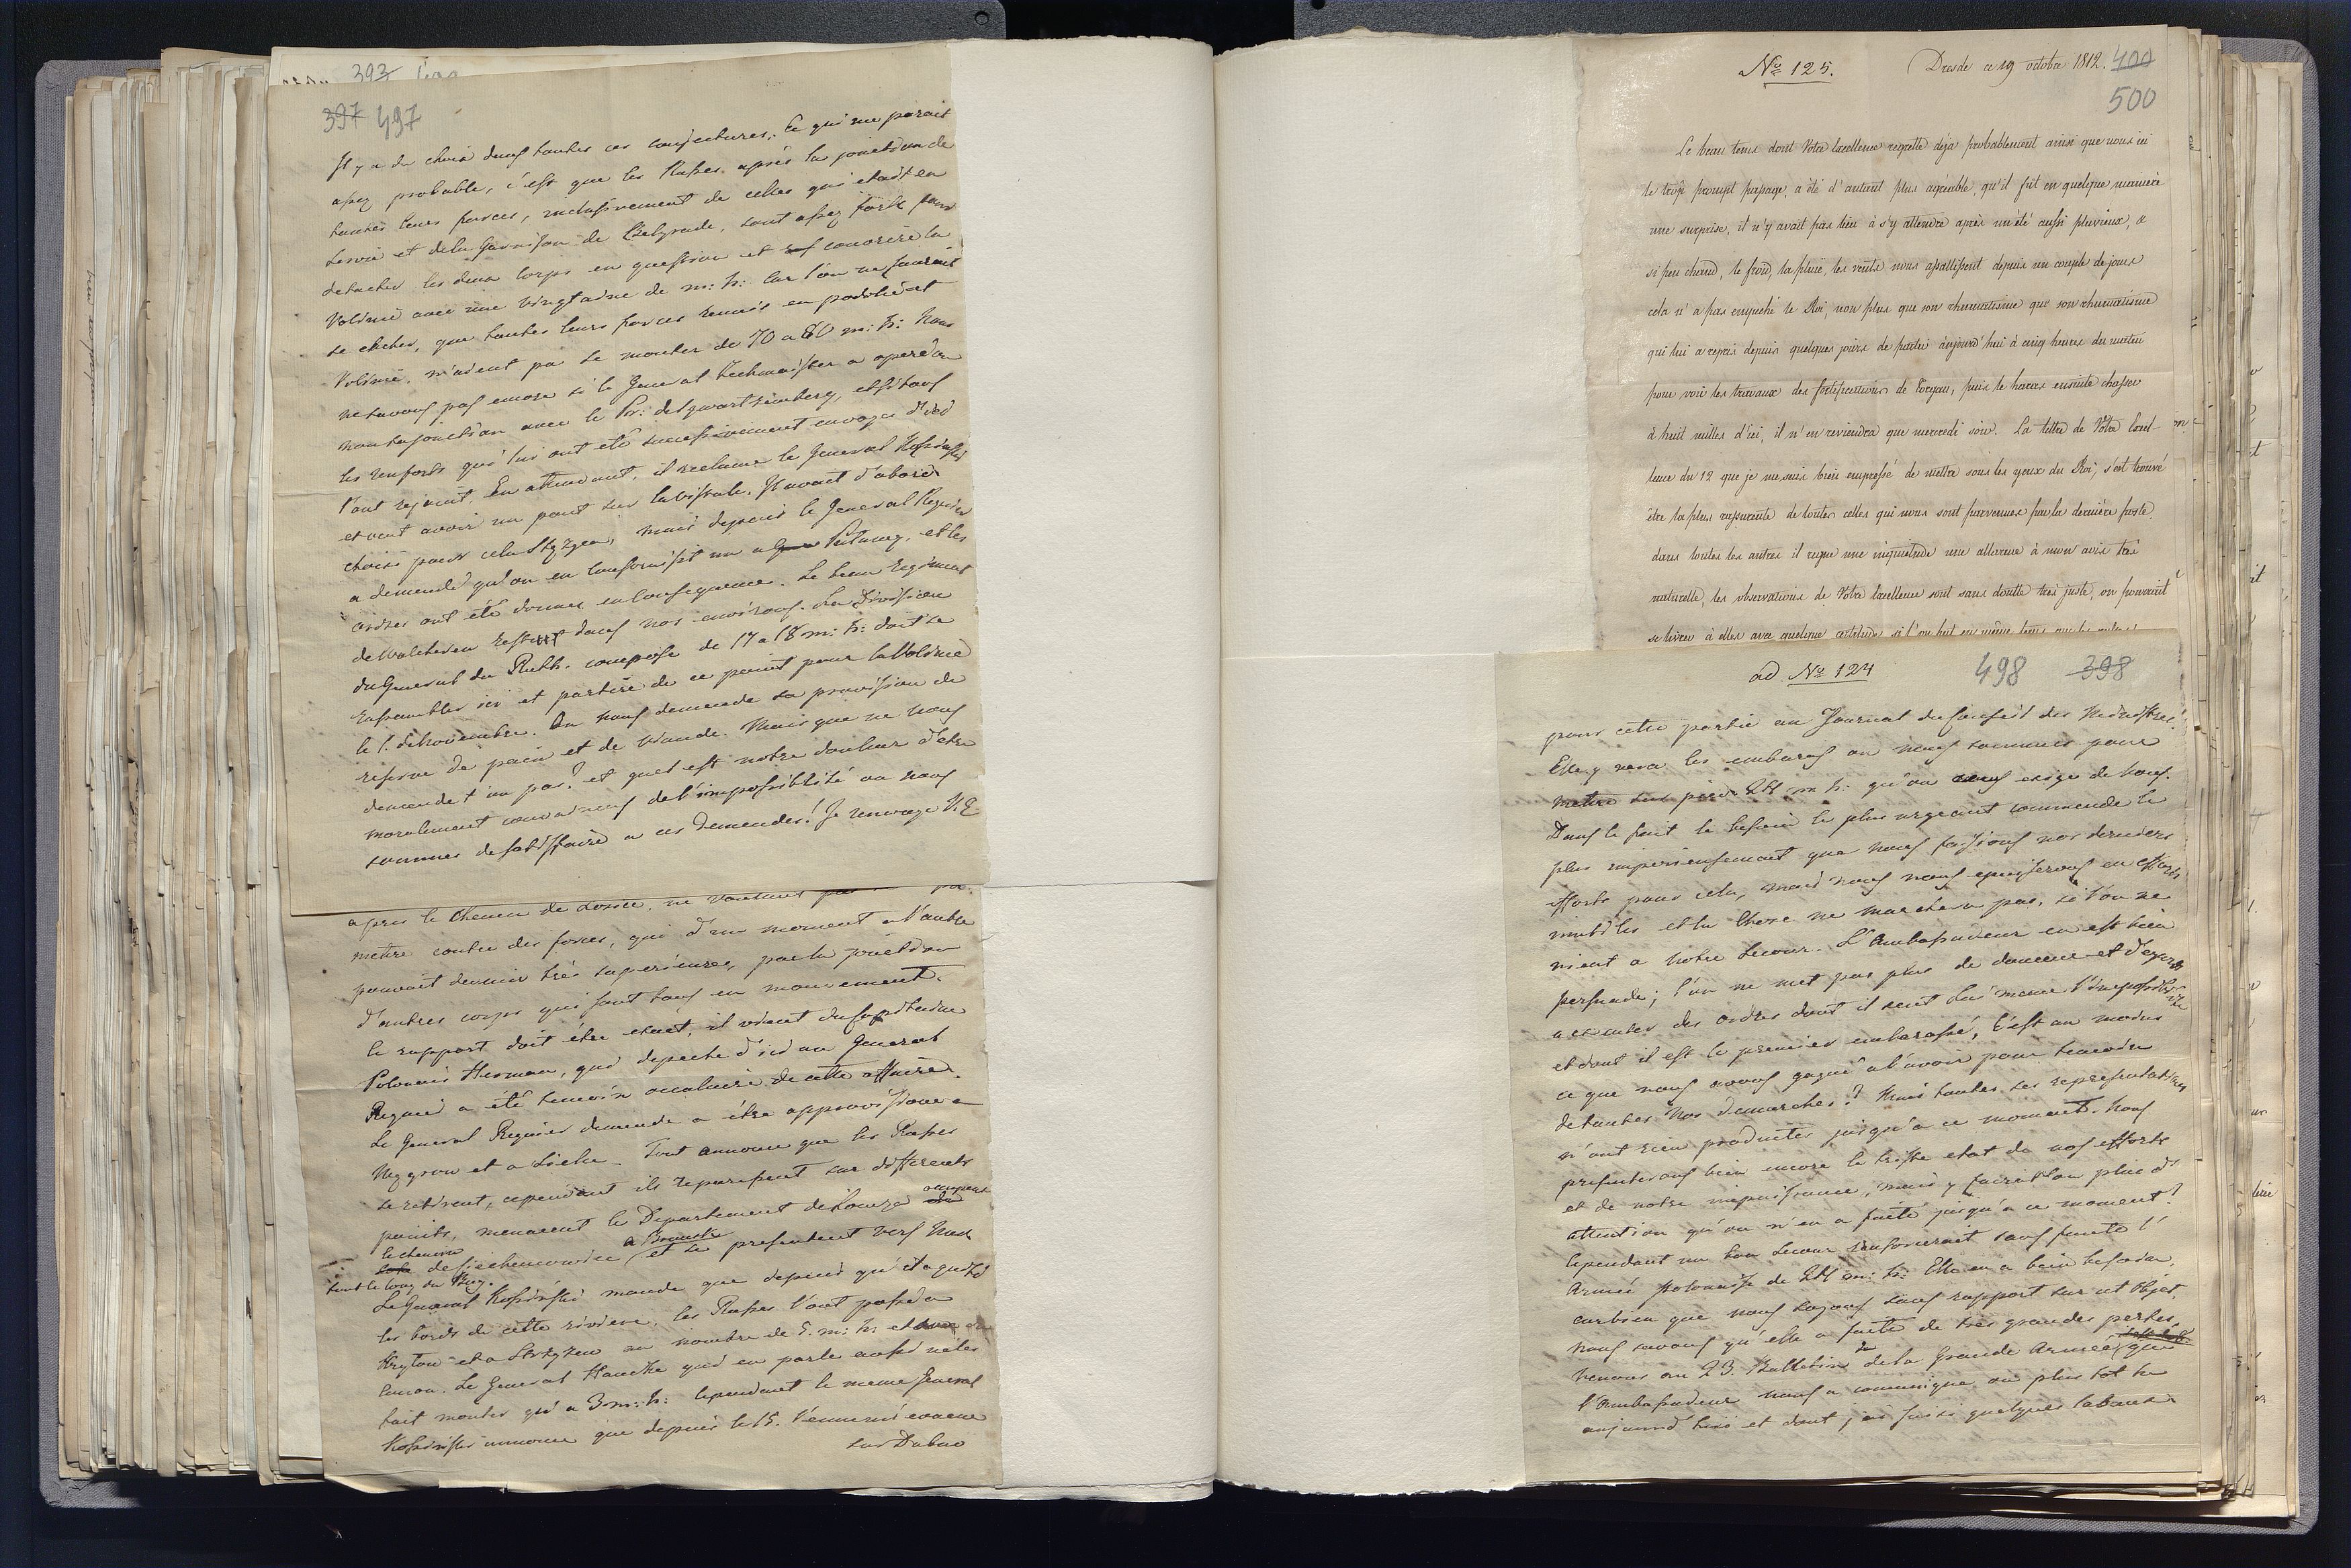 393
397 497
Il y a du choix dans toutes ces conjectures. Ce qui me parait
assez probable, c'est que les Russes après la jonction de
toutes leurs forces, inclusivement de celles qui etait en
Servie et de la Garnison de Belgrade, sont assez forts pour
detacher les deux corps en question et couvrire la
Volinie avec une vingtaine de m: h: Car l'on ne saurait
se cacher, que toutes leurs forces reunis en podolie et
Volinie, n'aient pu se monter de 70 a 80 m: h: Nous
ne savons pas encore si le General a operé ou
non sa jonction avec le Pr: de Schwartzenberg, et si tous
les renforts qui lui ont eté successivement envoyes d'ici
l'ont rejoint. En attendant, il reclame le General Kossinski
et veut avoir un pont sur la vistule. Il avait d'abord
choisi pour cela mais depuis le General Regnier
a demendé qu'on en construisit un a Pulawy, et les
ordres ont été donnés en consequence. Le beau Regiment
de Walcheren dans nos environs. La Division
du General du Rutt. composée de 17 a 18 m: h: doit se
rassembler ici et partire de ce point pour la Volinie
le 1. de Novembre. On nous demende sa provision de
reserve de pain et de viande. Mais que ne nous
demende t'on pas? et quel est notre douleur d'etre
moralement convaincus de l'impossibilité ou nous
sommes de satisfaire a ces demendes! Je renvoye V. E
a pris le chemin de ne voulant
mettre contre des forces, qui d'un moment a l'autre
pouvait devenir très superieures, par la jonction
d'autres corps qui sont tous en mouvement.
le rapport doit être exact, il vient du Capitaine
Polonais Herman, qui depeché d'ici au General
Regnier a été temoin oculaire de cette affaire.
Le General Regnier demende a être approvisioné a
Węgrow et a Siedlce. Tout annonce que les Russes
se retirent, cependant ils reparaissent sur differents
points, menacent le Departement de Lomza occupent
le chemin de Siechanowice a Bransk et se presentent vers Nur
tout le long du Bug.
Le General Kossinski mande que depuis qu'il a quitté
les bords de cette riviere, les Russes l'ont passé a
Krylow et a au nombre de 5. m: h: et
canon. Le General Hauche qui en parle aussi ne les
fait monter qu'a 3 m: h: Cependant le meme General
Kossinski annonce que depuis le 15. l'ennemi evacue
sur Dubno
Nro 125. Dresde ce 19 octobre 1812. 400
500
Le beau tems dont Votre Excellence regrette déja probablement ainsi que nous ici
le trop prompt passage, a été d'autant plus agréable, qu'il fût en quelque manière
une surprise, il n'y avait pas lieu à s'y attendre après un été aussi pluvieux, &
si peu chaud, le froid, la pluie, les vents nous assaillissent depuis un couple de jours
cela n'a pas empeché le Roi, non plus que son rhumatisme que son rhumatisme
qui lui a repris depuis quelques jours de partir aujourd'hui à cinq heures du matin
pour voir les travaux des fortifications de Torgau, puis le haras ensuite chasser
à huit milles d'ici, il n'en reviendra que mercredi soir. La lettre de Votre Excel-
lence du 12 que je me suis bien empressé de mettre sous les yeux du Roi, s'est trouvé
être la plus rassurente de toutes celles qui nous sont parvenues par la dernière poste
dans toutes les autres il regne une inquietude une allarme à mon avis très
naturelle, les observations de Votre Excellence sont sans doutte très juste, on pourrait
se livrer à elles avec quelque certitude si l'on
ad Nro 124 498 398
pour cette partie au Journal du Conseil des Ministres.
Elle y verra les embaras ou nous sommes pour
metre sur pied 24 m h: qu'on exige de nous.
Dans le fait le besoin le plus urgeant commende le
plus imperieusement que nous fassions nos derniers
efforts pour cela, mais nous nous epuiserons en efforts
inutiles et la Chose ne marchera pas, si l'on ne
vient a notre secour. L'Ambassadeur en est bien
persuadé; l'on ne met pas plus de douceur et d'egards
a executer des ordres dont il sent lui meme l'impossibilité
et dont il est le premier embarassé, C'est au moins
ce que nous avons gagné a l'avoir pour temoin
de toutes nos demarches! Mais toutes ses representations
n'ont rien produites jusqu'a ce moment. Nous
presenterons bien encore le triste etat de nos efforts
et de notre impuissance, mais y fairat'on plus d'
attention qu'on n'en a faite jusqu'a ce moment?
Cependant un bon secour renforcerait sans faute l'
Armée polonaise de 24 m: h: Elle en a bein besoin,
car bien que nous soyons sans rapport sur cet objet,
nous savons qu'elle a faite de tres grandes pertes.
Venons au 23. Bulletin de la Grande Armée, que
l'Ambassadeur nous a comunique ou plus tot lu
aujourd'hui et dont j'ai saisi quelques